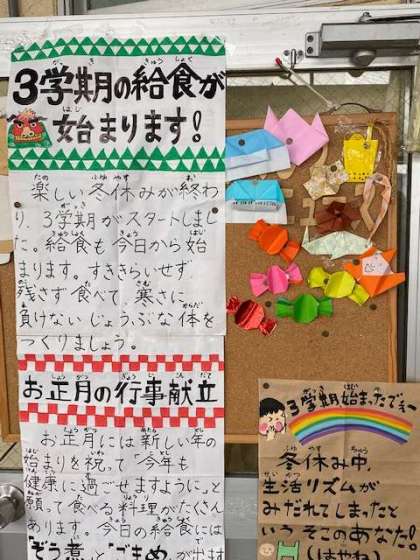 3学期の給食が
始まります!
楽しい冬休みが終わ
り、3学期がスタートしまし
た。給食も今日から始
まります。すききらいせず、
残さず食べて、寒さに
負けないじょうぶな体を
つくりましょう。
お正月の行事献立
お正月には新しい年の
始まりを祝って「今年も
健康に過ごせますように」と
願って食べる料理がたくさん
あります。今日の給食には
「ぞう煮」と「ごまめ」が出ます
3学期始まったでぇ〜
冬休み中、
生活リズムが
みだれてしまったと
いうそこのあなた!